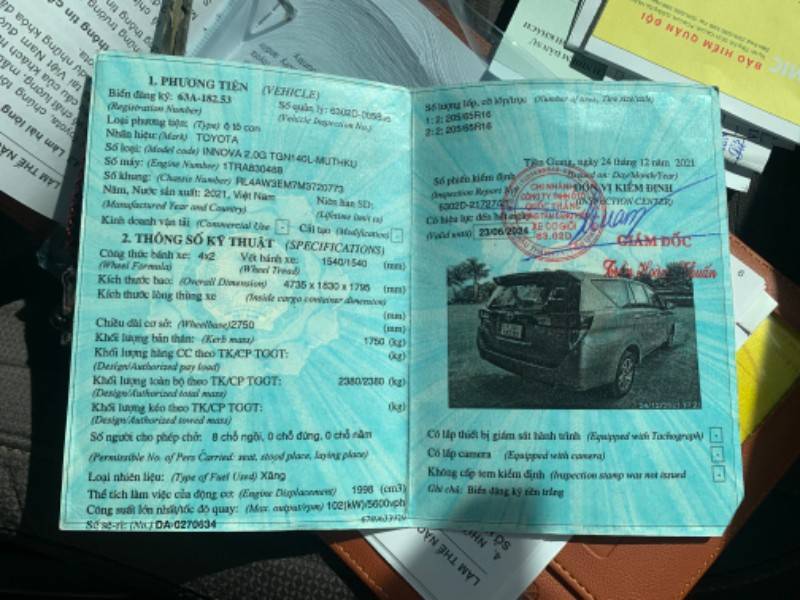 1. PHƯƠNG TIỆN (VEHICLE)
Biển đăng ký: 63A-182.53
(Registration Number)
Số quản lý: 6302D-005
(Vehicle Inspection No.)
Loại phương tiện: (Type) ô tô con
Nhãn hiệu: (Mark) TOYOTA
Số loại: (Model code) INNOVA 2.0G TGN140L-MUTHKU
Số máy: (Engine Number) 1TRA830488
Số khung: (Chassis Number) RL4AW3EM7M3720773
Năm, Nước sản xuất: 2021, Việt Nam
Niên hạn SD:
(Manufactured Year and Country)
(Lifetime limit to)
Kinh doanh vận tải (Commercial Use) - Cải tạo (Modification) -
2. THÔNG SỐ KỸ THUẬT (SPECIFICATIONS)
Công thức bánh xe: 4x2 Vết bánh xe: 1540/1540 (mm)
(Wheel Formula) (Wheel Tread)
Kích thước bao: (Overall Dimension) 4735 x 1830 x 1795 (mm)
Kích thước lòng thùng xe (Inside cargo container dimension)
(mm)
Chiều dài cơ sở: (Wheelbase) 2750 (mm)
Khối lượng bản thân: (Kerb mass) 1750 (kg)
Khối lượng hàng CC theo TK/CP TGGT: (kg)
(Design/Authorized pay load)
Khối lượng toàn bộ theo TK/CP TGGT: 2380/2380 (kg)
(Design/Authorized total mass)
Khối lượng kéo theo TK/CP TGGT: (kg)
(Design/Authorized towed mass)
Số người cho phép chở: 8 chỗ ngồi, 0 chỗ đứng, 0 chỗ nằm
(Permissible No. of Pers Carried: seat, stood place, laying place)
Loại nhiên liệu: (Type of Fuel Used) Xăng
Thể tích làm việc của động cơ: (Engine Displacement) 1998 (cm3)
Công suất lớn nhất/tốc độ quay: (Max. output/rpm) 102(kW)/5600vph
Số sê-ri: (No.) DA-0270634
Số lượng lốp, cỡ lốp/trục (Number of tires, Tire size/axle)
1: 2; 205/65R16
2: 2; 205/65R16
Tiền Giang, ngày 24 tháng 12 năm 2021
(Issued on: Day/Month/Year)
Số phiếu kiểm định
ĐƠN VỊ KIỂM ĐỊNH
(Inspection Report N
(INSPECTION CENTER)
6302D-21727/
Có hiệu lực đến hết ngày
(Valid until) 23/06/2024
CHI NHÁNH
XE CƠ GIỚI
63.02D
GIÁM ĐỐC
24/12/2021
Có lắp thiết bị giám sát hành trình (Equipped with Tachograph) -
Có lắp camera (Equipped with camera) -
Không cấp tem kiểm định (Inspection stamp was not issued -
Ghi chú: Biển đăng ký nền trắng
BẢO HIỂM QUÂN ĐỘI
MIC
LÀM THẾ NÀO